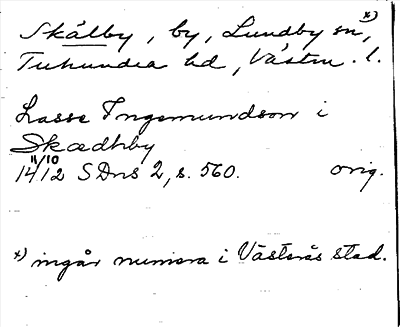 *)
Skälby, by, Lundby sn,
Tuhundra hd, Västm. l.
Lasse Ingemundson i
Skædhby
11/10
1412 SDns 2, s. 560. orig.
*) ingår numera i Västerås stad.